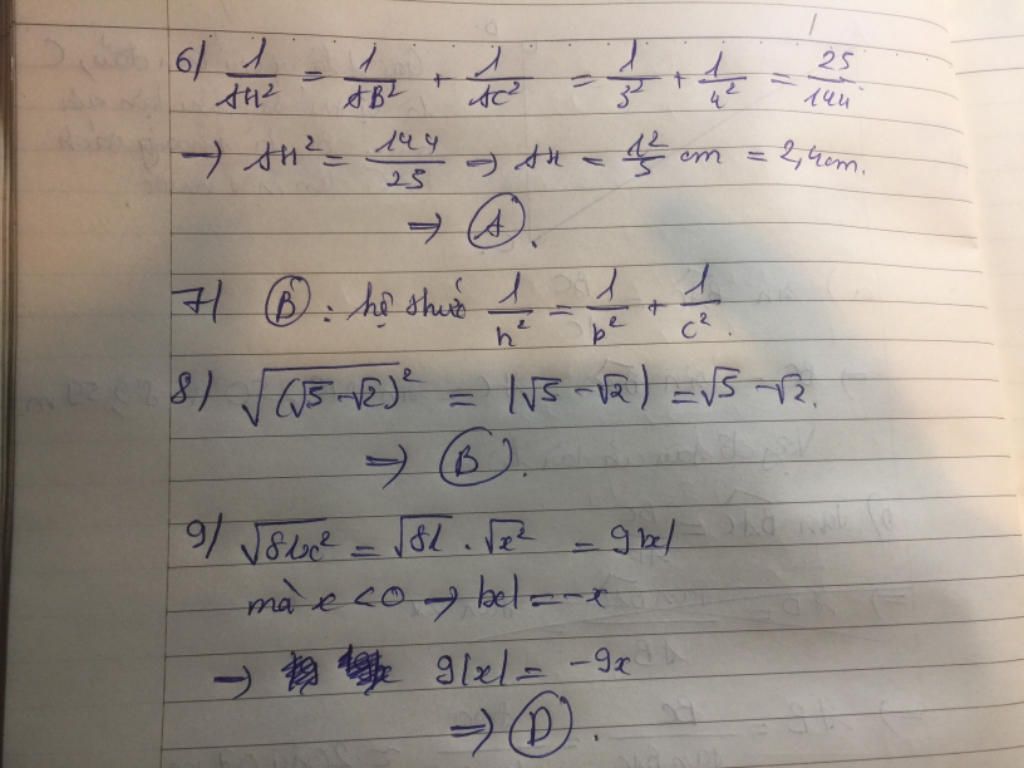 6) 1/AH² = 1/AB² + 1/AC² = 1/3² + 1/4² = 25/144.
→ AH² = 144/25 → AH = 12/5 cm = 2,4cm.
⇒ A.
7) B : hệ thức 1/h² = 1/b² + 1/c².
8) √(√5 - √2)² = |√5 - √2| = √5 - √2.
⇒ B.
9) √81x² = √81 . √x² = 9|x|
mà x < 0 → |x| = -x
→ 9|x| = -9x
⇒ D.